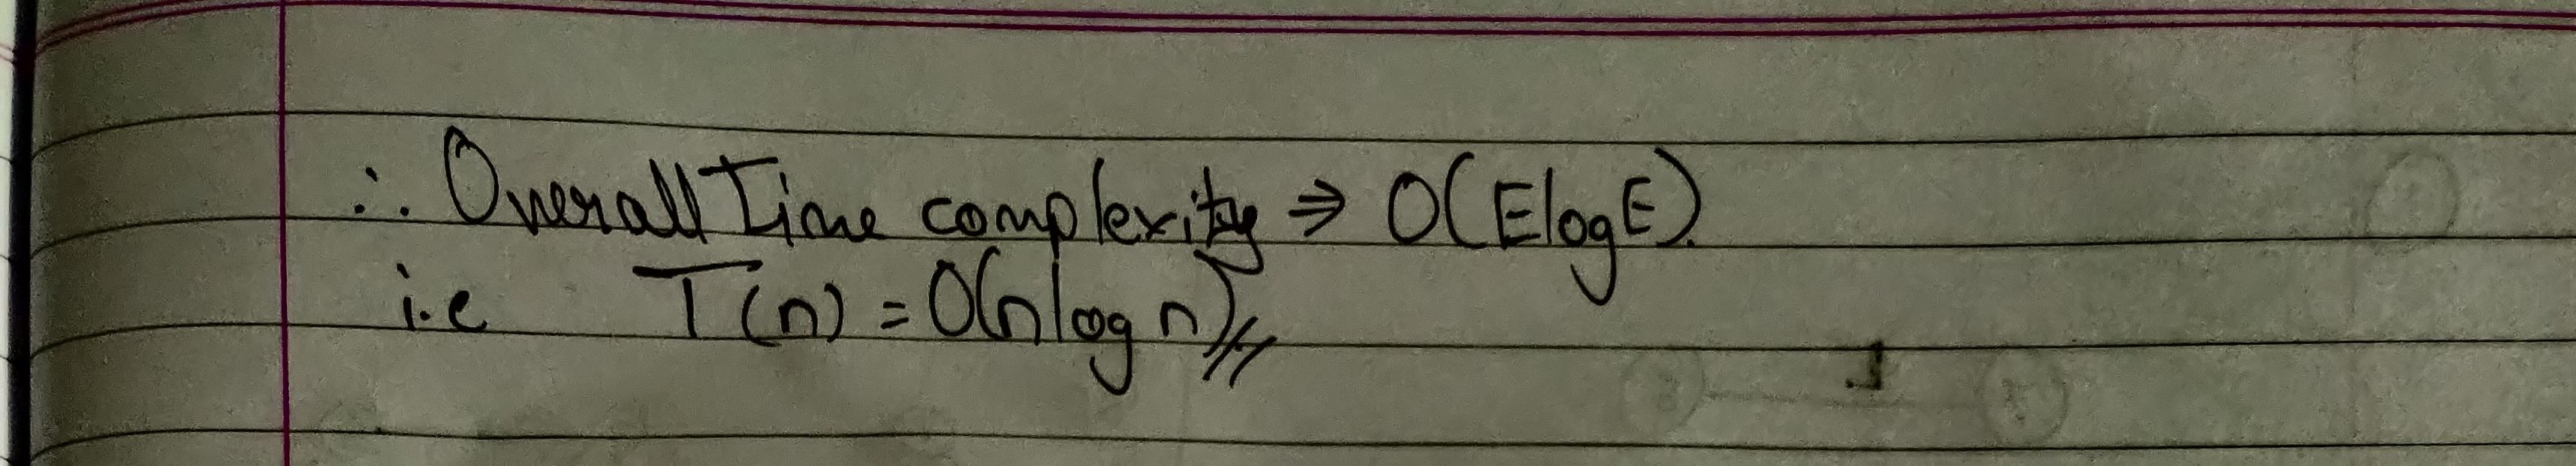 ∴ Overall Time complexity ⇒ O(ElogE).
i.e T(n) = O(n log n)